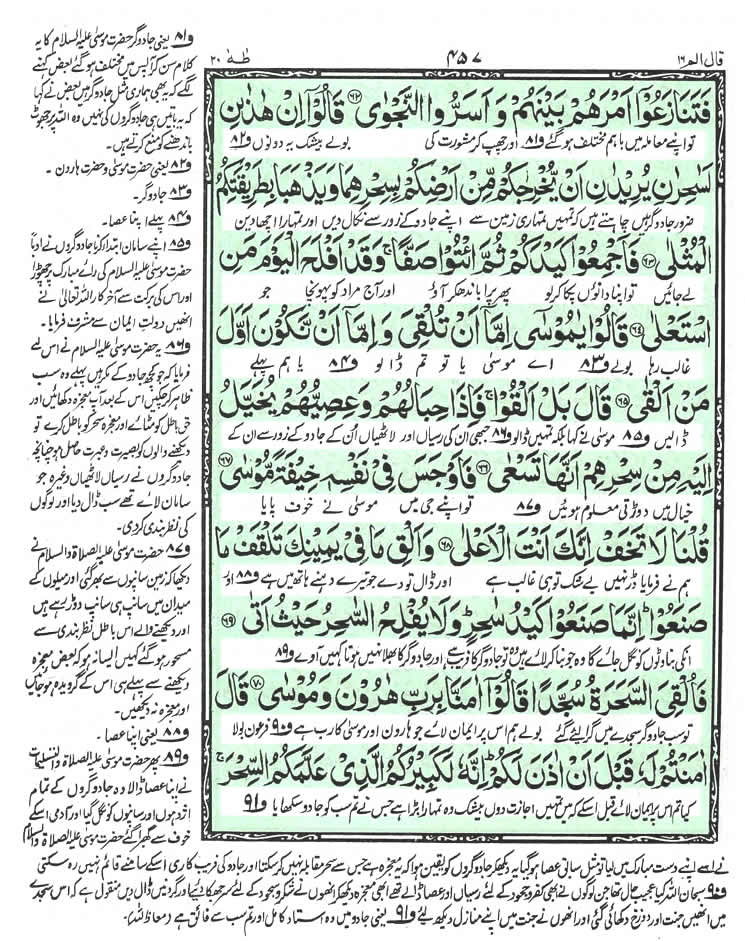 قال الم ۱۶
۴۵۷
طٰہٰ ۲۰
فَتَنَازَعُوْٓا اَمْرَهُمْ بَيْنَهُمْ وَ اَسَرُّوا النَّجْوٰى ۶۲ قَالُوْٓا اِنْ هٰذٰىنِ
تو اپنے معاملہ میں باہم مختلف ہو گئے و۸۱ اور چھپ کر مشورت کی بولے بیشک یہ دونوں و۸۲
لَسٰحِرٰنِ يُرِيْدٰنِ اَنْ يُّخْرِجٰكُمْ مِّنْ اَرْضِكُمْ بِسِحْرِهِمَا وَيَذْهَبَا بِطَرِيْقَتِكُمُ
ضرور جادوگر ہیں چاہتے ہیں کہ تمہیں تمہاری زمین سے اپنے جادو کے زور سے نکال دیں اور تمہارا اچھا دین
الْمُثْلٰى ۶۳ فَاَجْمِعُوْا كَيْدَكُمْ ثُمَّ ائْتُوْا صَفًّا ۚ وَ قَدْ اَفْلَحَ الْيَوْمَ مَنِ
لے جائیں تو اپنا دانوں پکا کر لو پھر پرا باندھ کر آؤ اور آج مراد کو پہونچا جو
اسْتَعْلٰى ۶۴ قَالُوْا يٰمُوْسٰٓى اِمَّآ اَنْ تُلْقِيَ وَ اِمَّآ اَنْ نَّكُوْنَ اَوَّلَ
غالب رہا بولے و۸۳ اے موسیٰ یا تو تم ڈالو و۸۴ یا ہم پہلے
مَنْ اَلْقٰى ۶۵ قَالَ بَلْ اَلْقُوْا ۚ فَاِذَا حِبَالُهُمْ وَ عِصِيُّهُمْ يُخَيَّلُ
ڈالیں و۸۵ موسیٰ نے کہا بلکہ تمہیں ڈالو و۸۶ جبھی ان کی رسیاں اور لاٹھیاں اُن کے جادو کے زور سے ان کے
اِلَيْهِ مِنْ سِحْرِهِمْ اَنَّهَا تَسْعٰى ۶۶ فَاَوْجَسَ فِيْ نَفْسِهٖ خِيْفَةً مُّوْسٰى ۶۷
خیال میں دوڑتی معلوم ہوئیں و۸۷ تو اپنے جی میں موسیٰ نے خوف پایا
قُلْنَا لَا تَخَفْ اِنَّكَ اَنْتَ الْاَعْلٰى ۶۸ وَ اَلْقِ مَا فِيْ يَمِيْنِكَ تَلْقَفْ مَا
ہم نے فرمایا ڈر نہیں بے شک تو ہی غالب ہے اور ڈال تو دے جو تیرے دہنے ہاتھ میں ہے و۸۸ اور
صَنَعُوْا ؕ اِنَّمَا صَنَعُوْا كَيْدُ سٰحِرٍ ؕ وَ لَا يُفْلِحُ السّٰحِرُ حَيْثُ اَتٰى ۶۹
انکی بناوٹوں کو نگل جائے گا وہ جو بنا کر لائے ہیں وہ تو جادوگر کا فریب ہے اور جادوگر کا بھلا نہیں ہوتا کہیں آوے و۸۹
فَاُلْقِيَ السَّحَرَةُ سُجَّدًا قَالُوْٓا اٰمَنَّا بِرَبِّ هٰرُوْنَ وَ مُوْسٰى ۷۰ قَالَ
تو سب جادوگر سجدے میں گرالئے گئے بولے ہم اس پر ایمان لائے جو ہارون اور موسیٰ کا رب ہے و۹۰ فرعون بولا
اٰمَنْتُمْ لَهٗ قَبْلَ اَنْ اٰذَنَ لَكُمْ ؕ اِنَّهٗ لَكَبِيْرُكُمُ الَّذِيْ عَلَّمَكُمُ السِّحْرَ ۚ
کیا تم اس پر ایمان لائے قبل اسکے کہ میں تمہیں اجازت دوں بیشک وہ تمہارا بڑا ہے جس نے تم سب کو جادو سکھایا و۹۱
و۸۱ یعنی جادوگر حضرت موسیٰ علیہ السلام کا یہ
کلام سن کر آپس میں مختلف ہو گئے بعض کہنے
لگے کہ یہ بھی ہماری مثل جادوگر ہیں بعض نے کہا
کہ یہ باتیں ہی جادوگروں کی نہیں وہ اللہ پر جھوٹ
باندھنے کو منع کرتے ہیں۔
و۸۲ یعنی حضرت موسیٰ و حضرت ہارون۔
و۸۳ جادوگر۔
و۸۴ پہلے اپنا عصا۔
و۸۵ اپنے سامان ابتدا کرنا جادوگروں نے ادباً
حضرت موسیٰ علیہ السلام کی رائے مبارک پر چھوڑا
اور اس کی برکت سے آخر کار اللہ تعالیٰ نے
انھیں دولتِ ایمان سے مشرف فرمایا۔
و۸۶ یہ حضرت موسیٰ علیہ السلام نے اس لئے
فرمایا کہ جو کچھ جادو کے مکر ہیں پہلے وہ سب
ظاہر کر چکیں اس کے بعد آپ معجزہ دکھائیں اور
حق باطل کو مٹائے اور معجزہ سحر کو باطل کرے تو
دیکھنے والوں کو بصیرت و عبرت حاصل ہو چنانچہ
جادوگروں نے رسیاں لاٹھیاں وغیرہ جو
سامان لائے تھے سب ڈال دیا اور لوگوں
کی نظر بندی کر دی۔
و۸۷ حضرت موسیٰ علیہ الصلاۃ والسلام نے
دیکھا کہ زمین سانپوں سے بھر گئی اور میلوں کے
میدان میں سانپ ہی سانپ دوڑ رہے ہیں
اور دیکھنے والے اس باطل نظر بندی سے
مسحور ہو گئے کہیں ایسا نہ ہو کہ بعض معجزہ
دیکھنے سے پہلے ہی اس کے گرویدہ ہو جائیں
اور معجزہ نہ دیکھیں۔
و۸۸ یعنی اپنا عصا۔
و۸۹ پھر حضرت موسیٰ علیہ الصلاۃ والتسلیمات
نے اپنا عصا ڈالا وہ جادوگروں کے تمام
اژدہوں اور سانپوں کو نگل گیا اور آدمی اسکے
خوف سے گھبرا گئے حضرت موسیٰ علیہ الصلاۃ والسلام
نے اسے اپنے دست مبارک میں لیا تو مثل سابق عصا ہو گیا یہ دیکھ کر جادوگروں کو یقین ہوا کہ یہ معجزہ ہے جس سے سحر مقابلہ نہیں کر سکتا اور جادو کی فریب کاری اسکے سامنے قائم نہیں رہ سکتی
و۹۰ سبحان اللہ کیا عجیب حال تھا جن لوگوں نے ابھی کفر و جحود کے لئے رسیاں اور عصا ڈالے تھے ابھی معجزہ دیکھ کر انھوں نے شکر و سجود کے لئے سر جھکا دئیے اور گردنیں ڈال دیں منقول ہے کہ اس سجدے
میں انھیں جنت اور دوزخ دکھائی گئی اور انھوں نے جنت میں اپنے منازل دیکھ لئے و۹۱ یعنی جادو میں وہ استاد کامل اور تم سب سے فائق ہے (معاذ اللہ)۔